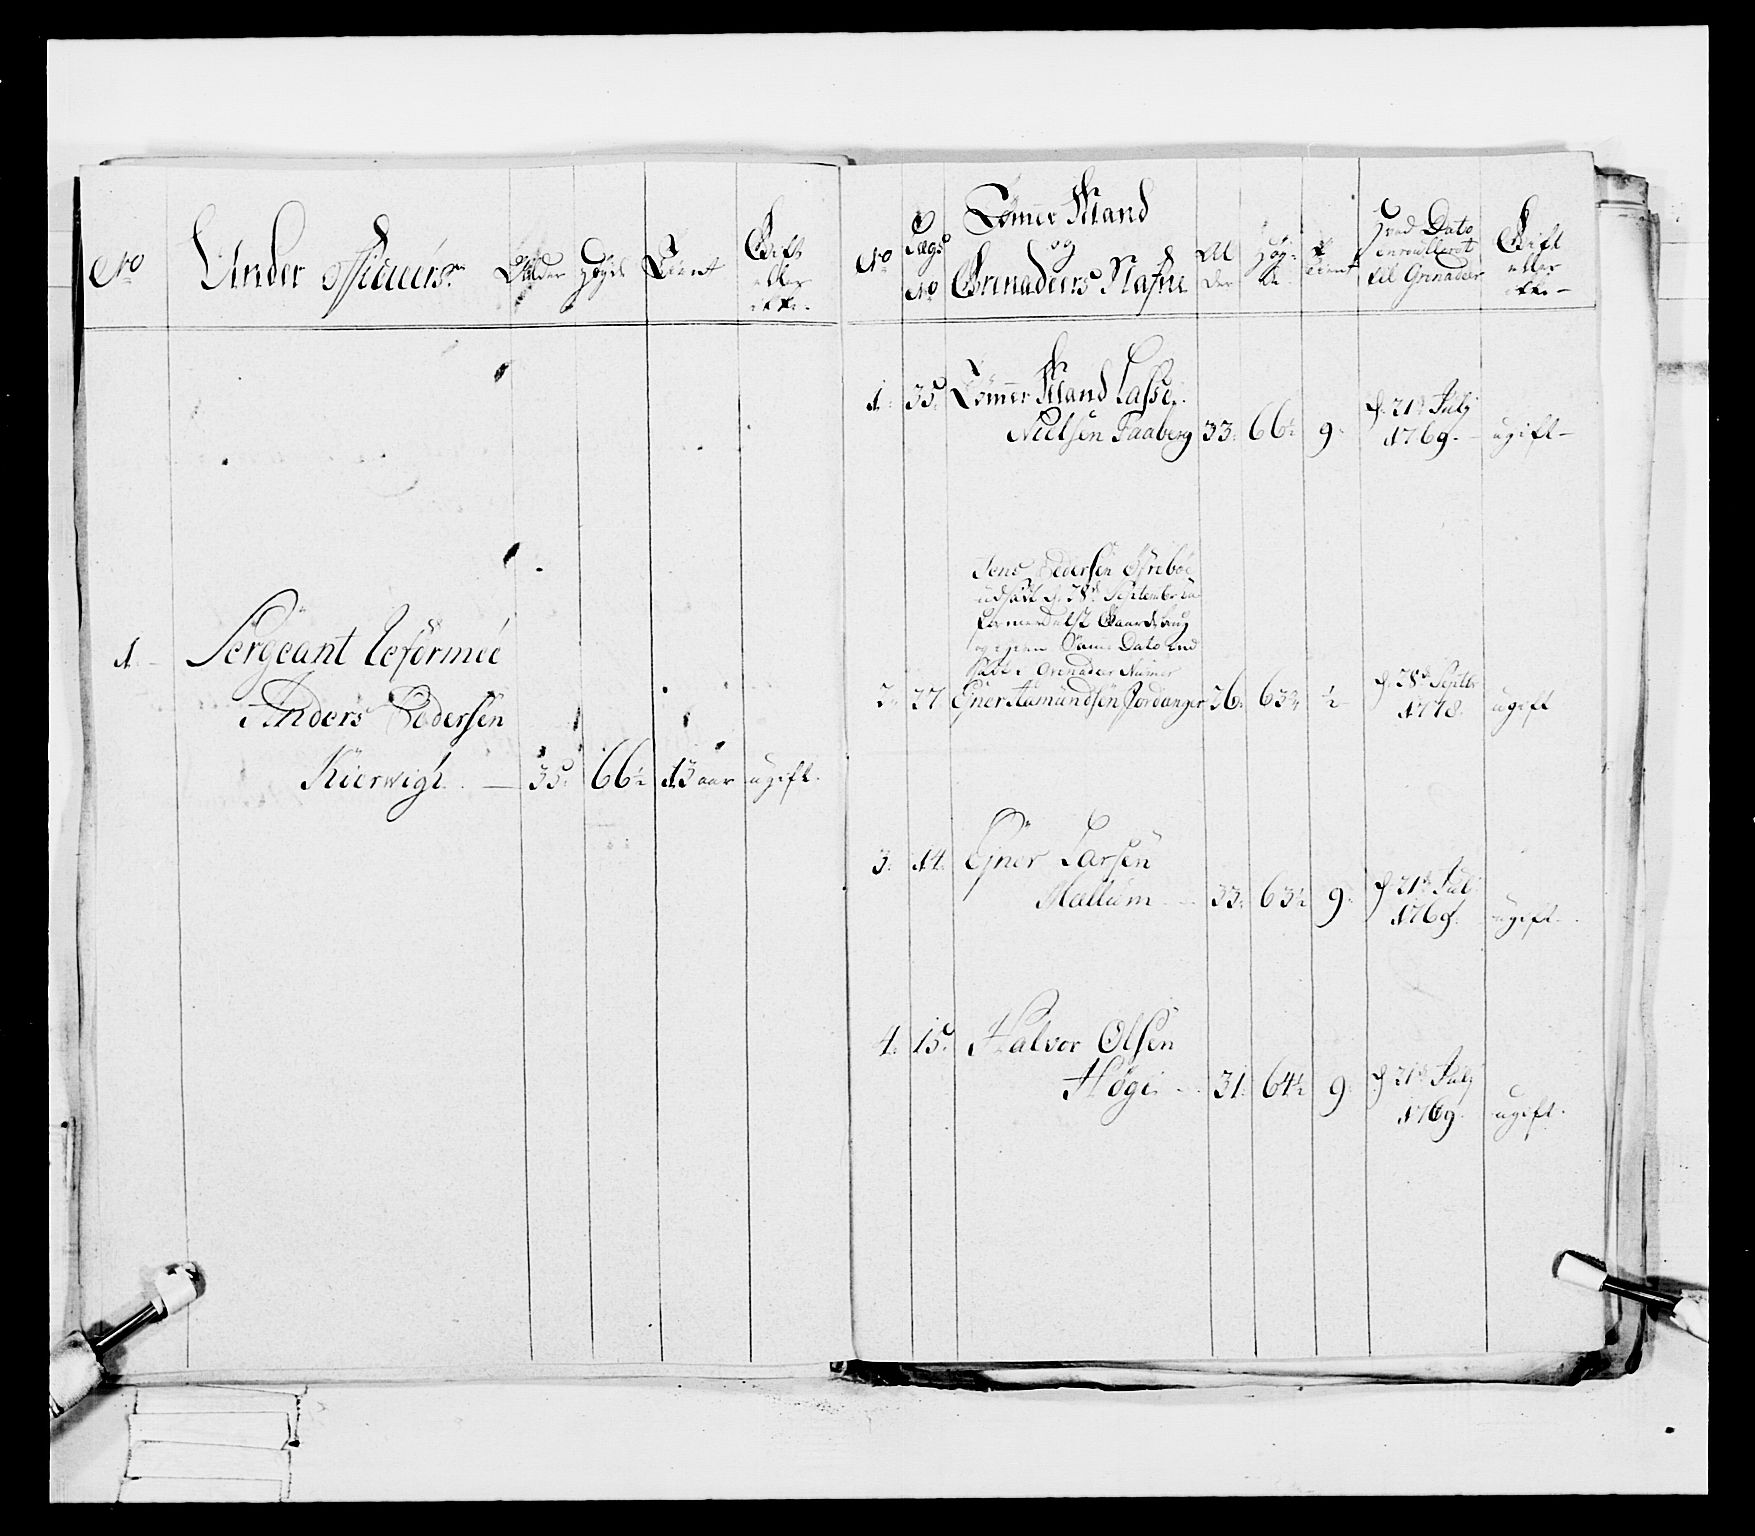 No
Under Officiers
Alder
Høyde
Tient
Gift
eller
ikke.
1.
Sergeant reformeé
Anders Pedersen
Kierwigh. — 35. 66½ 13 aar ugift.
No
Lægs
No
Tømer Mand
og
Grenadeers Nafne
Al
der
Høy-
de.
Tient
Hvad Dato
enroulleret
til Grenadeer
Gift
eller
ikke—
1. 35. Tømer Mand Lasse
Nielsen Faaberg 33. 66½ 9. d. 21de Julj
1769. ugift—
Jens Pedersen
udsatt d. 28de September
Formedelst
Samme Dato ind
satt i Grenadeer Numer
2. 27 Ejner Aamundsen Jordanger 26. 63½ ½ d. 28de Septbr
1778. ugift
3. 14. Ejner Larsen
Mallum — 33. 63½ 9. d. 21de Julj
1769. ugift.
4. 15. Halvor Olsen
Høge — 31. 64½ 9. d. 21de Julj
1769. ugift.